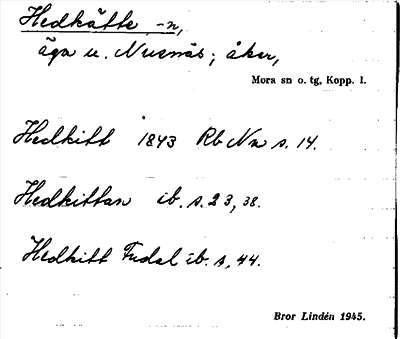 Hedkätte -n,
äga u. Nusnäs; åker,
Mora sn o. tg, Kopp. l.
Hedkitt 1843 Rb Nn s. 14.
Hedkittan ib. s. 23, 38.
Hedkitt Fudal ib. s. 44.
Bror Lindén 1945.